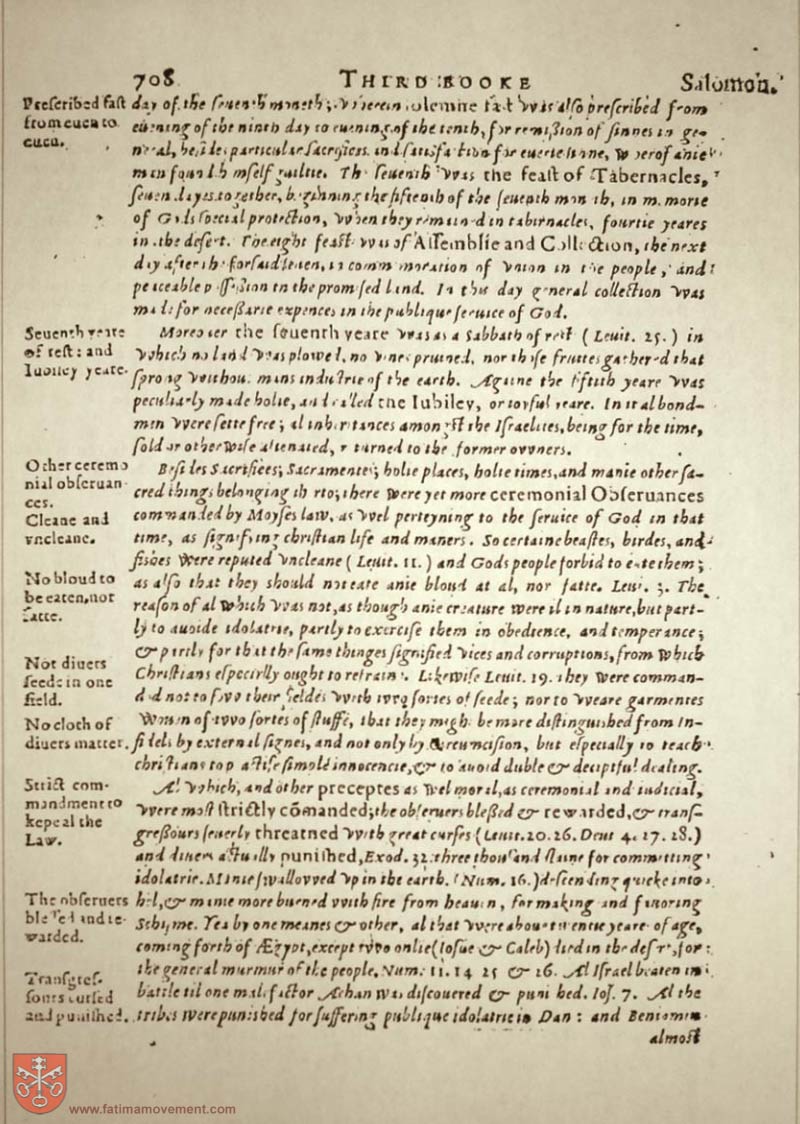 708 THIRD BOOKE Salomon.
Prescribed fast
from euen to
euen.
day of the seuenth moneth; wherein solemne fast was also prescribed from
euening of the ninth day to euening of the tenth, for remission of sinnes in ge-
neral, besides particular sacrifices and satisfaction for euerie sinne, wherof anie
man found himself guiltie. The seuenth was the feast of Tabernacles,
seuen dayes together, beginning the fiftenth of the seuenth month, in memorie
of Gods special protection, when they remained in tabernacles, fourtie yeares
in the desert. The eight feast was of Assemblie and Collection, the next
day after the forsaid seuen, in commemoration of vnion in the people, and
peaceable possession in the promised land. In this day general collection was
made for necessarie expences in the publique seruice of God.
Seuenth yeare
of rest: and
Iubiley yeare.
Moreouer the seuenth yeare was as a Sabbath of rest (Leuit. 25.) in
which no land was plowed, no vines pruined, nor those fruites gathered that
sprong without mans industrie of the earth. Againe the fiftith yeare was
peculiarly made holie, and called the Iubiley, or ioyful yeare. In it al bond-
men were sette free; al inheritances amongst the Israelites, being for the time,
sold or otherwise alienated, returned to the former owners.
Other ceremo
nial obseruan
ces.
Cleane and
vncleane.
Besides Sacrifices, Sacramentes, holie places, holie times, and manie other sa-
cred things belonging therto; there were yet more ceremonial Obseruances
commanded by Moyses law, as wel perteyning to the seruice of God in that
time, as signifying christian life and maners. So certaine beastes, birdes, and
fishes were reputed vncleane (Leuit. 11.) and Gods people forbid to eate them;
No bloud to
be eaten, nor
fatte.
as also that they should not eate anie bloud at al, nor fatte. Leui. 3. The
reason of al which was not, as though anie creature were il in nature, but part-
ly to auoide idolatrie, partly to exercise them in obedience, and temperance;
& partly for that the same thinges signified vices and corruptions, from which
Not diuers
seede in one
field.
Christians especially ought to refraine. Likewise Leuit. 19. they were comman-
ded not to sow their feldes with two sortes of seede; nor to weare garmentes
No cloth of
diuers matter.
wouen of two sortes of stuffe, that they might be more distinguished from In-
fidels by external signes, and not only by circumcision, but especially to teach
christians to practise simple innocencie, & to auoid duble & deceiptful dealing.
Strict com-
mandment to
kepe al the
Law.
Al which, and other preceptes as wel moral, as ceremonial and iudicial,
were most strictly cõmanded; the obseruers blessed & rewarded, & trans-
gressours seuerly threatned with great curses (Leuit. 20. 26. Deut 4. 27. 28.)
and diuers actually punished, Exod. 32. three thousand slaine for committing
idolatrie. Manie swallowed vp in the earth. (Num. 16.) descending quicke into
The obseruers
blessed and re-
warded.
hel, & manie more burned with fire from heauen, for making and fauoring
Schisme. Yea by one meanes & other, al that were aboue twentie yeare of age,
coming forth of Ægypt, except two onlie (Iosue & Caleb) died in the desert, for
Transgres-
sours cursed
and punished.
the general murmur of the people, Num. 11. 14 25 & 26. Al Israel beaten in
battle til one malefactor Achan was discouered & punished. Ios. 7. Al the
tribes were punished for suffering publique idolatrie in Dan: and Beniamin
almost
www.fatimamovement.com